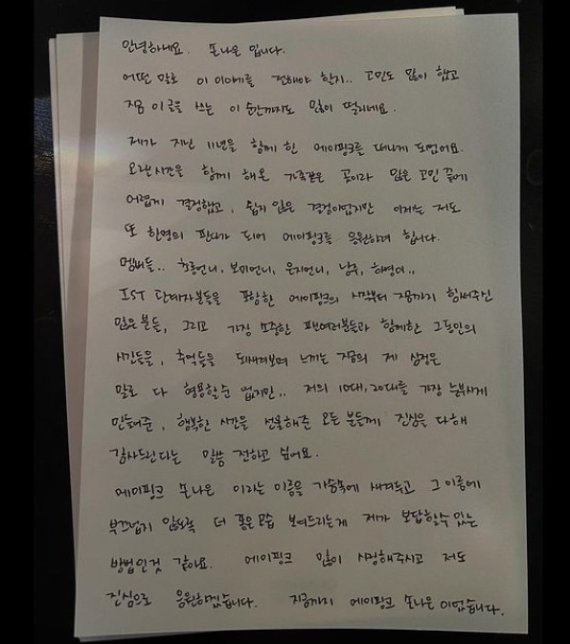 안녕하세요. 손나은 입니다.
어떤 말로 이 이야기를 전해야 할지.. 고민도 많이 했고
지금 이 글을 쓰는 이 순간까지도 많이 떨리네요.
제가 지난 11년을 함께 한 에이핑크를 떠나게 되었어요.
오랜시간을 함께 해온 가족같은 곳이라 많은 고민 끝에
어렵게 결정했고, 쉽지 않은 결정이었지만 이제는 저도
또 한명의 판다가 되어 에이핑크를 응원하려 합니다.
멤버들.. 초롱언니, 보미언니, 은지언니, 남주, 하영이..
IST 관계자분들을 포함한 에이핑크의 시작부터 지금까지 힘써주신
많은 분들, 그리고 가장 소중한 팬여러분들과 함께한 그동안의
시간들을, 추억들을 되새겨보며 느끼는 지금의 제 심정은
말로 다 형용할순 없지만.. 저의 10대, 20대를 가장 눈부시게
만들어준, 행복한 시간을 선물해준 모든 분들께 진심을 다해
감사드린다는 말씀 전하고 싶어요.
에이핑크 손나은 이라는 이름을 가슴속에 새겨두고 그 이름에
부끄럽지 않도록 더 좋은모습 보여드리는게 제가 보답할수 있는
방법인것 같아요. 에이핑크 많이 사랑해주시고 저도
진심으로 응원하겠습니다. 지금까지 에이핑크 손나은 이었습니다.